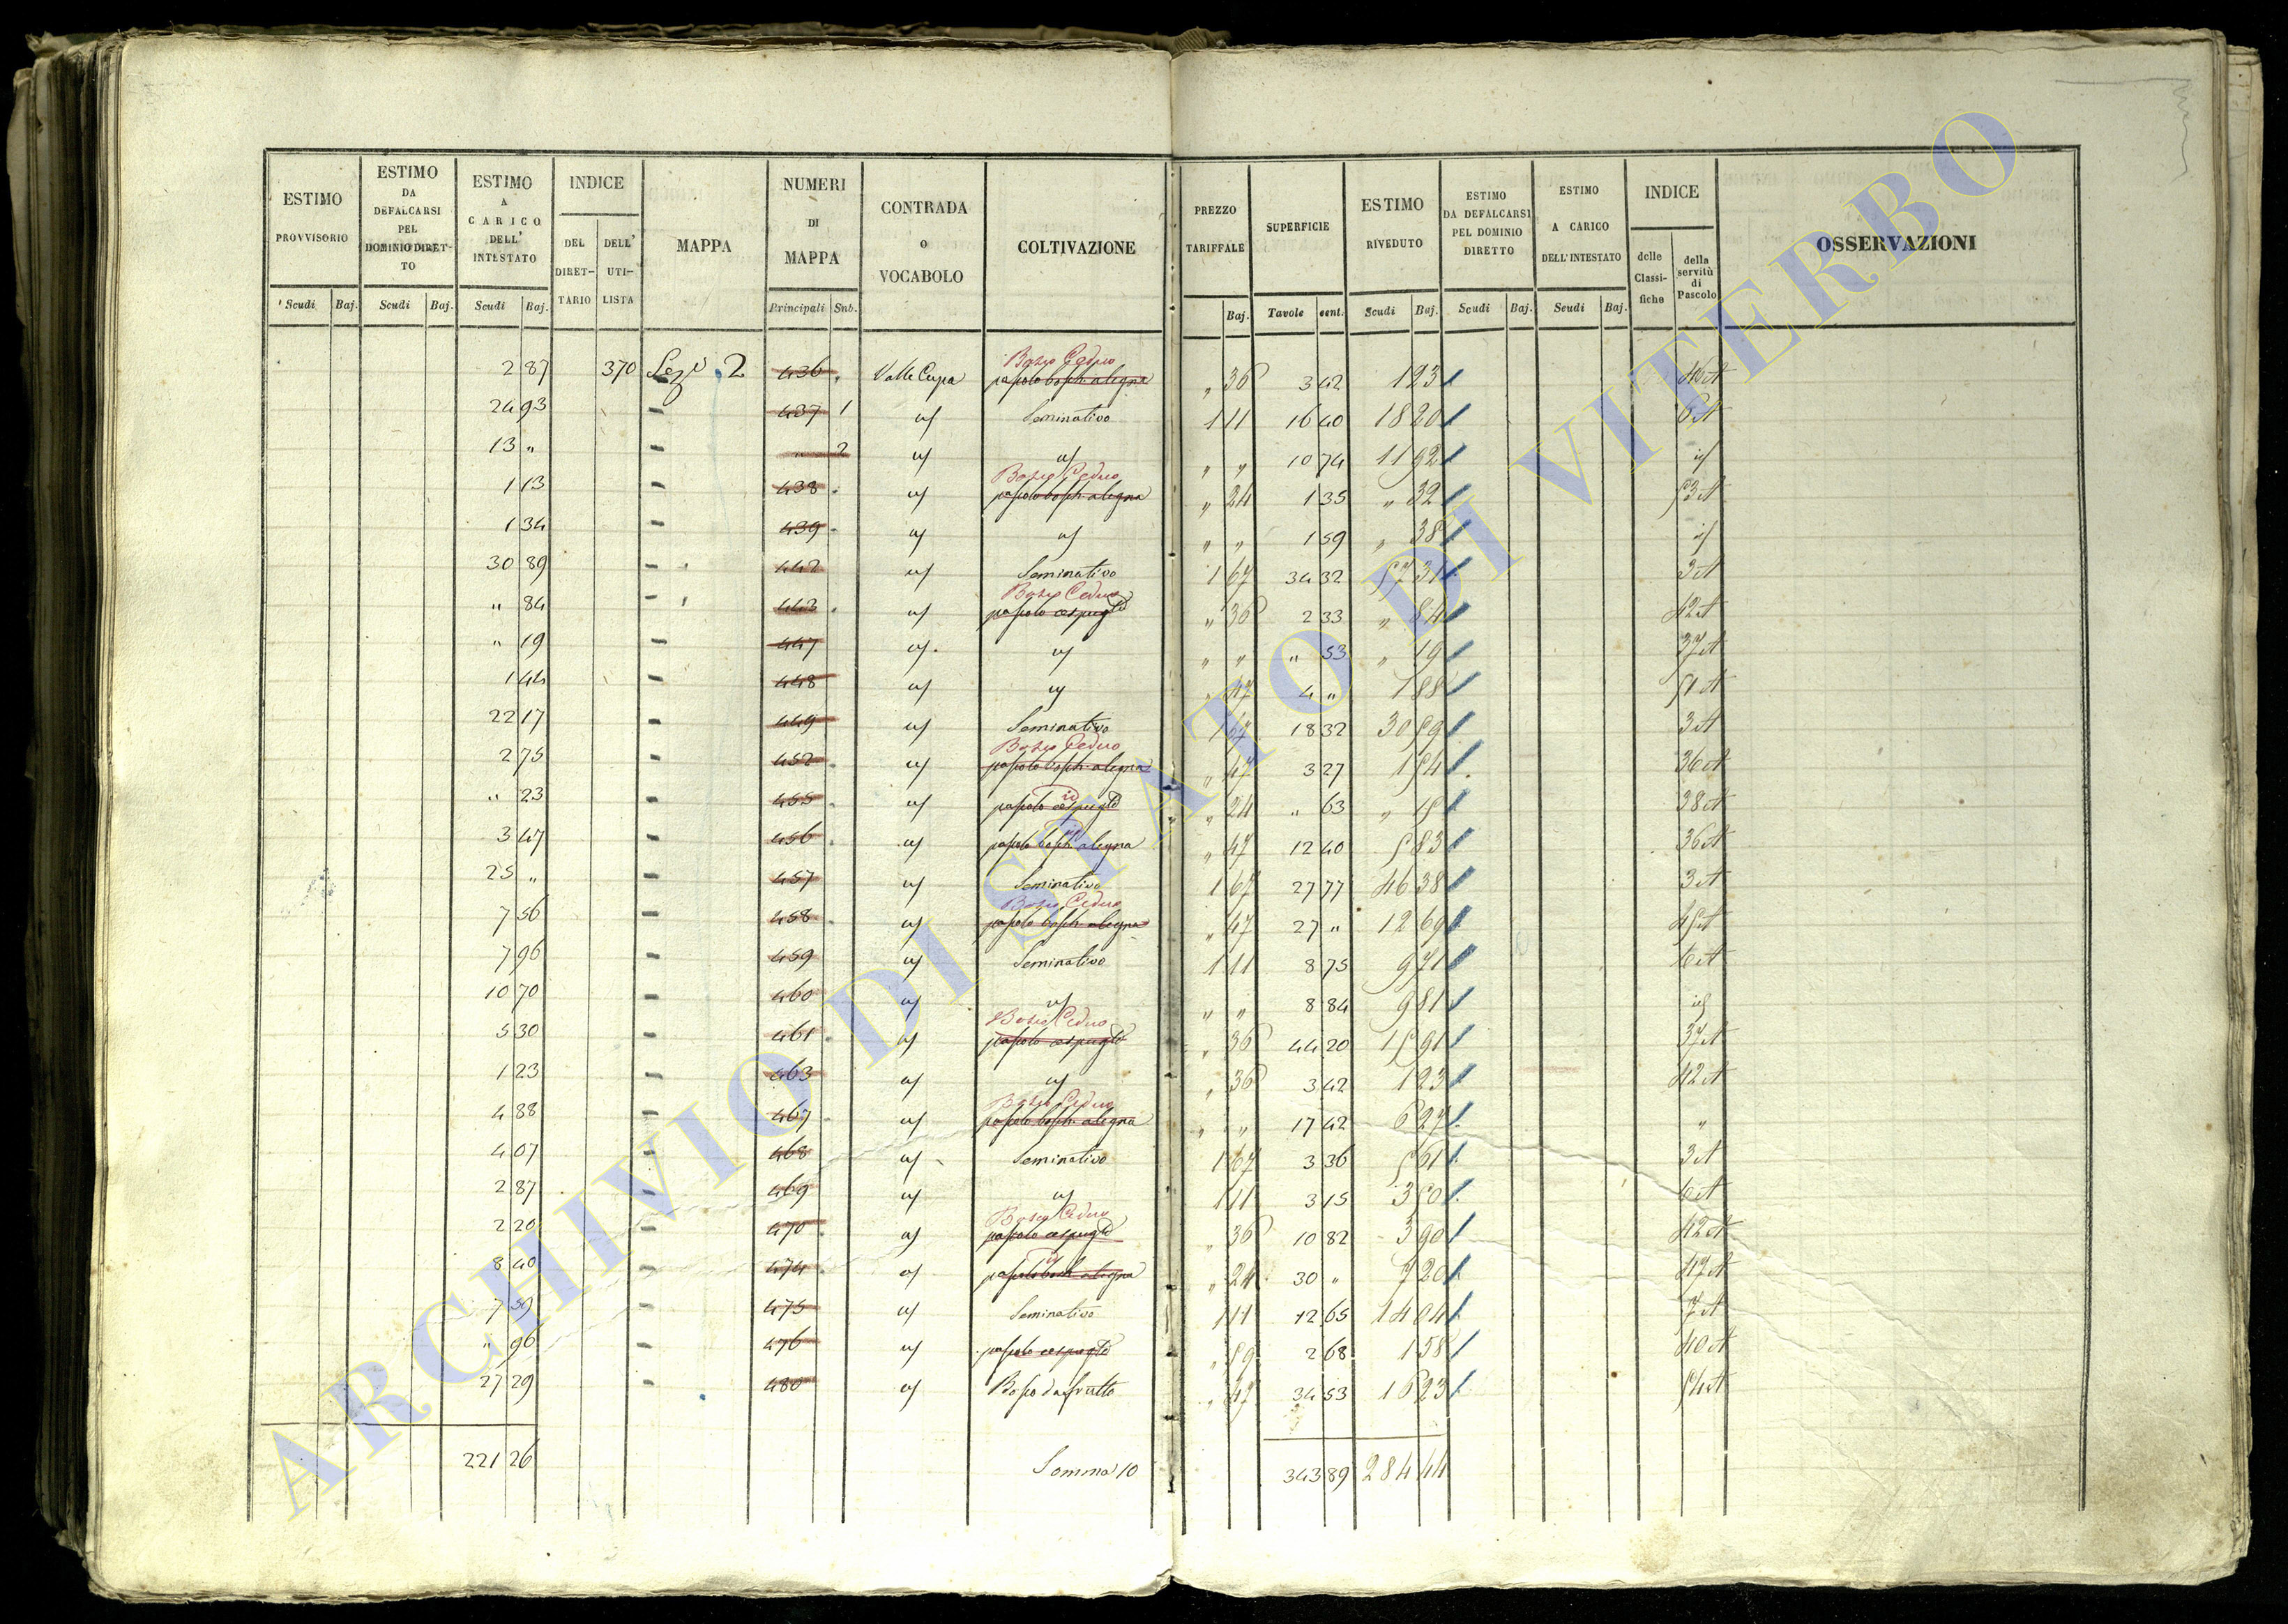 ESTIMO PROVVISORIO | ESTIMO DA DEFALCARSI PEL DOMINIO DIRET- TO | ESTIMO A CARICO DELL' INTESTATO | INDICE | MAPPA | NUMERI DI MAPPA | CONTRADA O VOCABOLO | COLTIVAZIONE | PREZZO TARIFFALE | SUPERFICIE | ESTIMO RIVEDUTO | ESTIMO DA DEFALCARSI PEL DOMINIO DIRETTO | ESTIMO A CARICO DELL'INTESTATO | INDICE | OSSERVAZIONI
DEL DIRET- TARIO | DELL' UTI- LISTA | delle Classi- fiche | della servitù di Pascolo
Scudi | Baj. | Scudi | Baj. | Scudi | Baj. | Principali | Sub. | Baj. | Tavole | cent. | Scudi | Baj. | Scudi | Baj. | Scudi | Baj.
Bosco Ceduo
2 87 | 370 | Sez. 2 | 436 | Valle Cupa | pascolo bosch. a legna | " 36 | 3 42 | 1 23
24 93 | - | 437 1 | id | Seminativo | 1 11 | 16 40 | 18 20 | 6 A
13 " | - | " 2 | id | id | " " | 10 74 | 11 92 | id
Bosco Ceduo
1 13 | - | 438 | id | pascolo bosch. a legna | " 24 | 1 35 | " 32 | 53 A
1 34 | - | 439 | id | id | " " | 1 59 | " 38 | id
30 89 | - | 442 | id | Seminativo | 1 67 | 34 32 | 57 31 | 3 A
Bosco Ceduo
" 84 | - | 443 | id | pascolo cespugl. | " 36 | 2 33 | " 84 | 42 A
" 19 | - | 447 | id | id | " " | " 53 | " 19 | 37 A
1 44 | - | 448 | id | id | " 47 | 4 " | 1 88 | 51 A
22 17 | - | 449 | id | Seminativo | 1 67 | 18 32 | 30 59 | 3 A
Bosco Ceduo
2 75 | - | 452 | id | pascolo bosch. a legna | " 47 | 3 27 | 1 54 | 36 A
id
" 23 | - | 455 | id | pascolo cespugl. | " 24 | " 63 | " 15 | 38 A
id
3 47 | - | 456 | id | pascolo bosch. a legna | " 47 | 12 40 | 5 83 | 36 A
25 " | - | 457 | id | Seminativo | 1 67 | 27 77 | 46 38 | 3 A
Bosco Ceduo
7 56 | - | 458 | id | pascolo bosch. a legna | " 47 | 27 " | 12 69 | 45 A
7 96 | - | 459 | id | Seminativo | 1 11 | 8 75 | 9 71 | 6 A
10 70 | - | 460 | id | id | " " | 8 84 | 9 81 | id
Bosco Ceduo
5 30 | - | 461 | id | pascolo cespugl. | " 36 | 44 20 | 15 91 | 37 A
1 23 | - | 463 | id | id | " 36 | 3 42 | 1 23 | 42 A
Bosco Ceduo
4 88 | - | 467 | id | pascolo bosch. a legna | " " | 17 42 | 6 27 | "
4 07 | - | 468 | id | Seminativo | 1 67 | 3 36 | 5 61 | 3 A
2 87 | - | 469 | id | id | 1 11 | 3 15 | 3 50 | 6 A
Bosco Ceduo
2 20 | - | 470 | id | pascolo cespugl. | " 36 | 10 82 | 3 90 | 42 A
id
8 40 | - | 474 | id | pascolo bosch. a legna | " 24 | 30 " | 7 20 | 47 A
7 59 | - | 475 | id | Seminativo | 1 11 | 12 65 | 14 04 | 7 A
" 96 | - | 476 | id | pascolo cespugl. | " 59 | 2 68 | 1 58 | 40 A
27 29 | - | 480 | id | Bosco da frutto | " 47 | 34 53 | 16 23 | 54 A
221 26 | Somma 10 | 343 89 | 284 44
ARCHIVIO DI STATO DI VITERBO